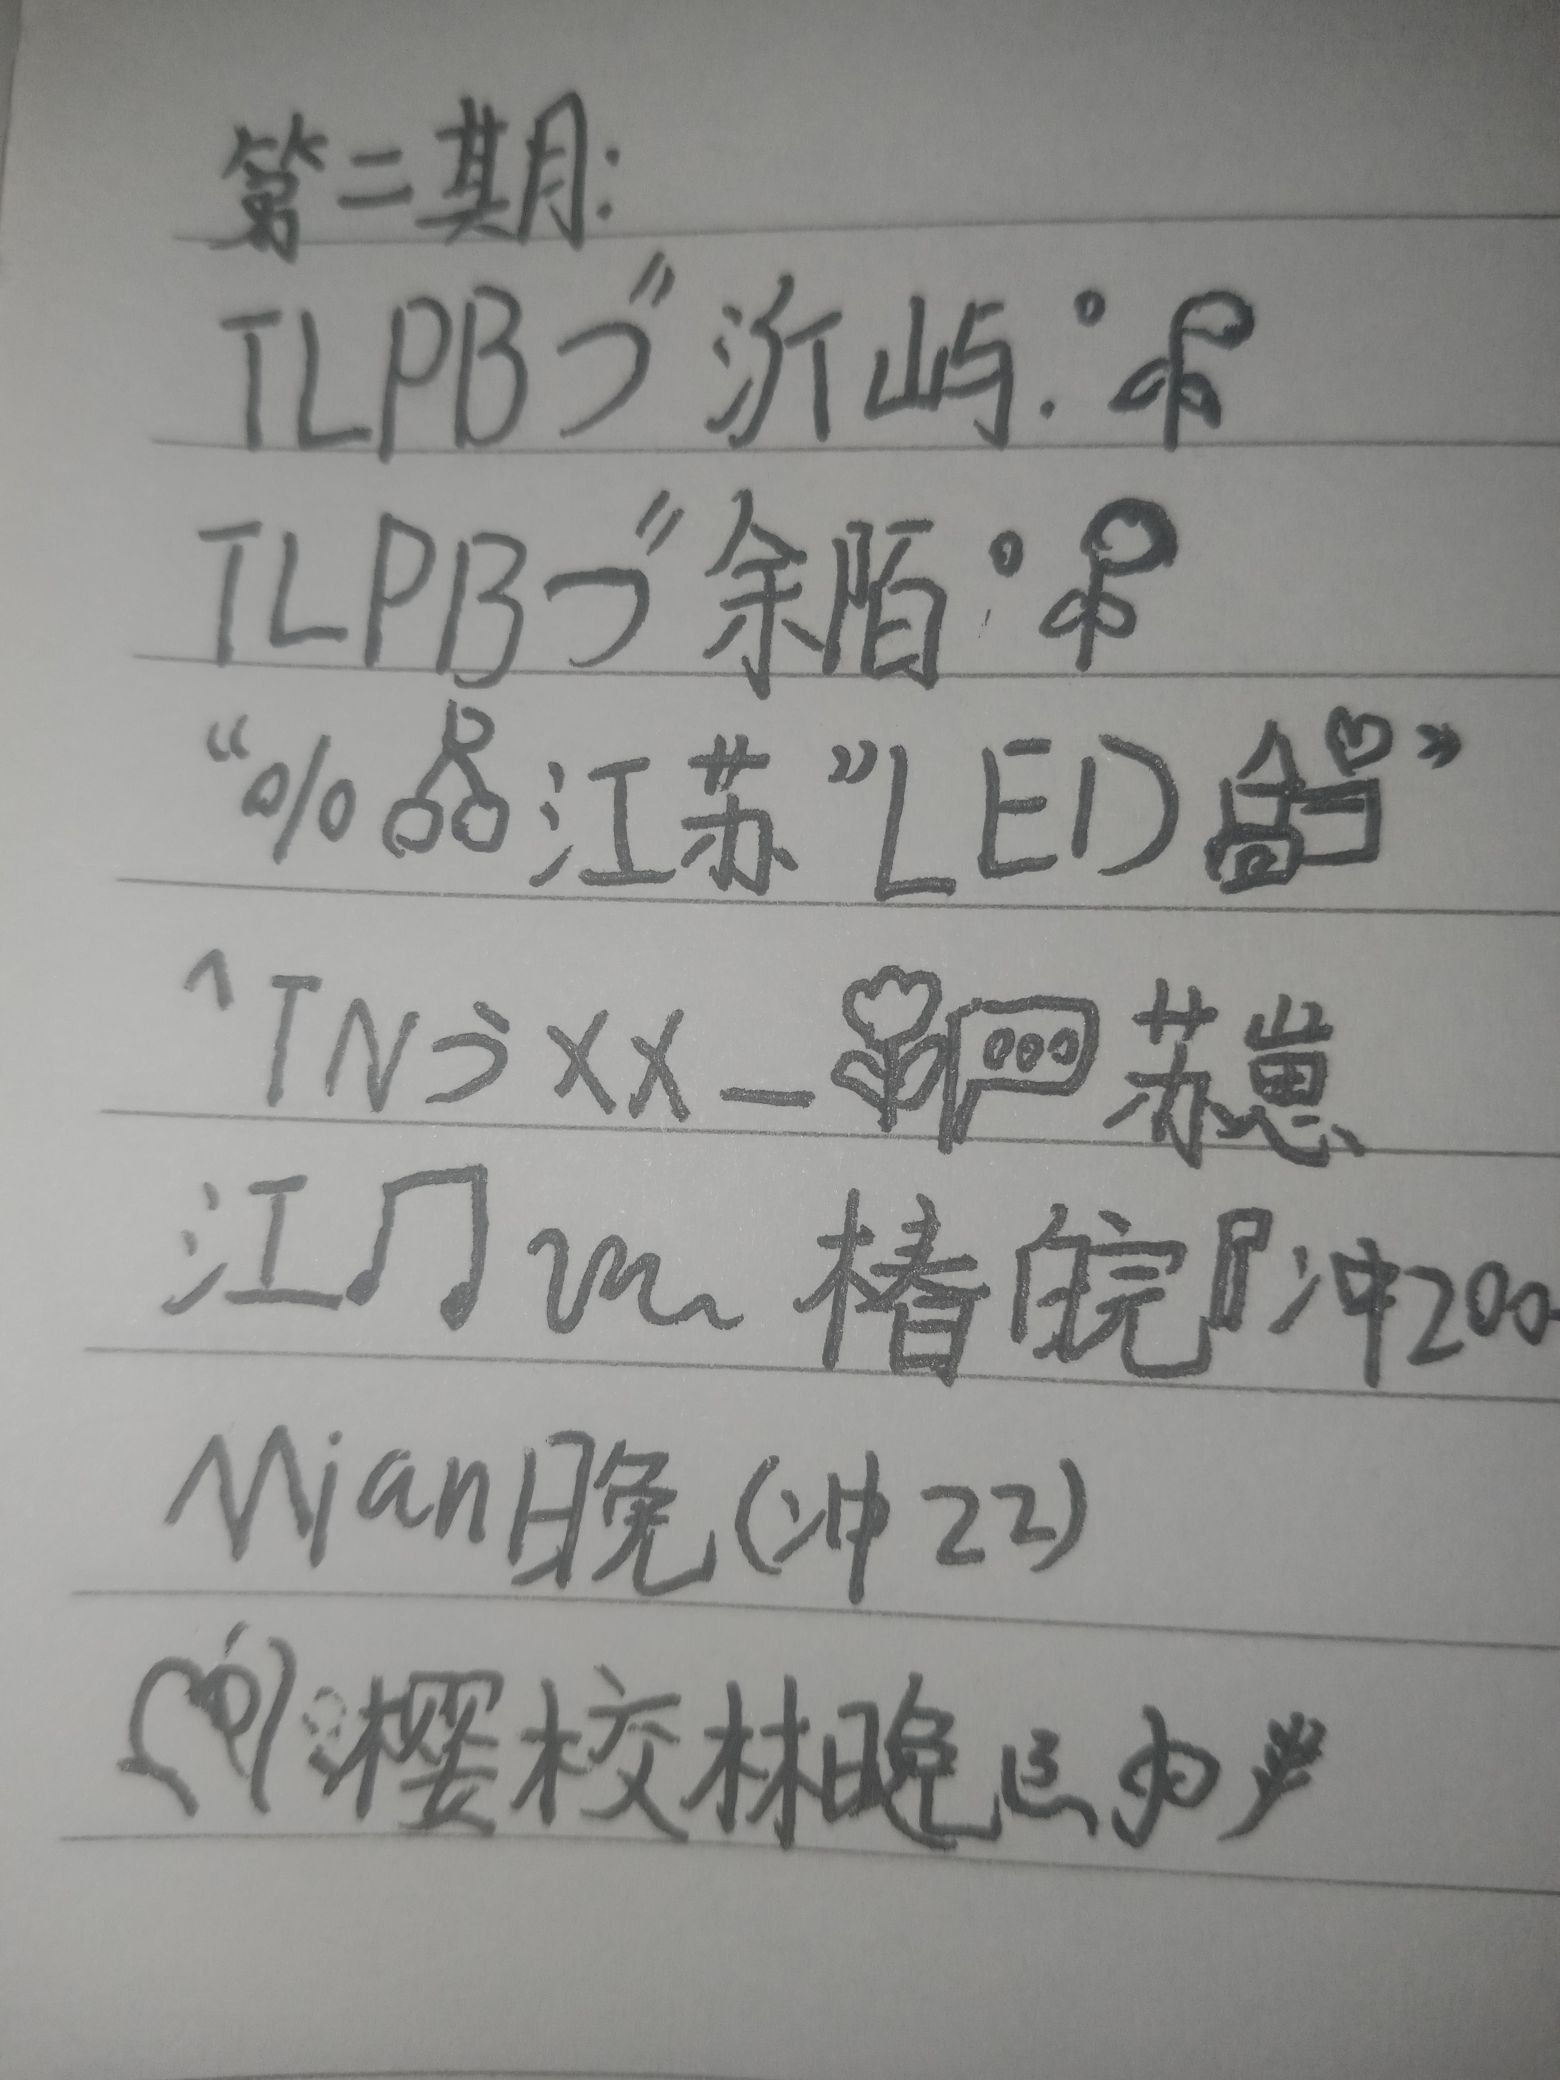 第二期:
TLPBづ沂屿.°
TLPBづ余陌°
“%江苏”LED”
^TNうXX_苏崽
江♫椿皖『冲200
Mian晚(冲22)
樱校林晚